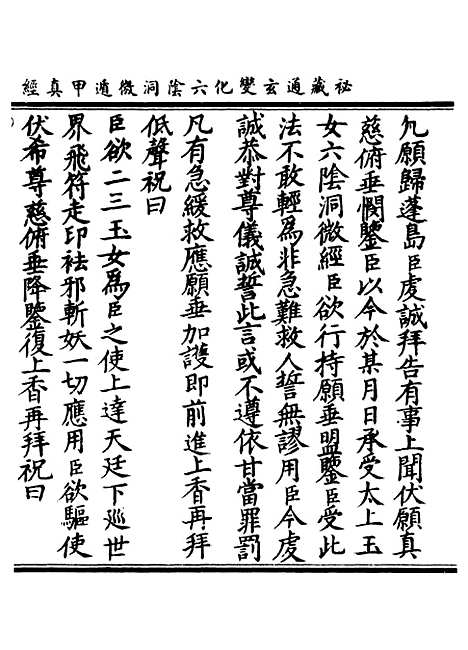 祕藏通玄變化六陰洞微遁甲真經
凡願歸蓬島臣虔誠拜告有事上聞伏願真
慈俯垂憫鑒臣以今於某月日承受太上玉
女六陰洞微經臣欲行持願垂盟鑒臣受此
法不敢輕爲非急難救人誓無謬用臣今虔
誠恭對尊儀誠誓此言或不遵依甘當罪罰
凡有急緩救應願垂加護即前進上香再拜
低聲祝曰
臣欲二三玉女爲臣之使上達天廷下巡世
界飛符走印祛邪斬妖一切應用臣欲驅使
伏希尊慈俯垂降鑒復上香再拜祝曰